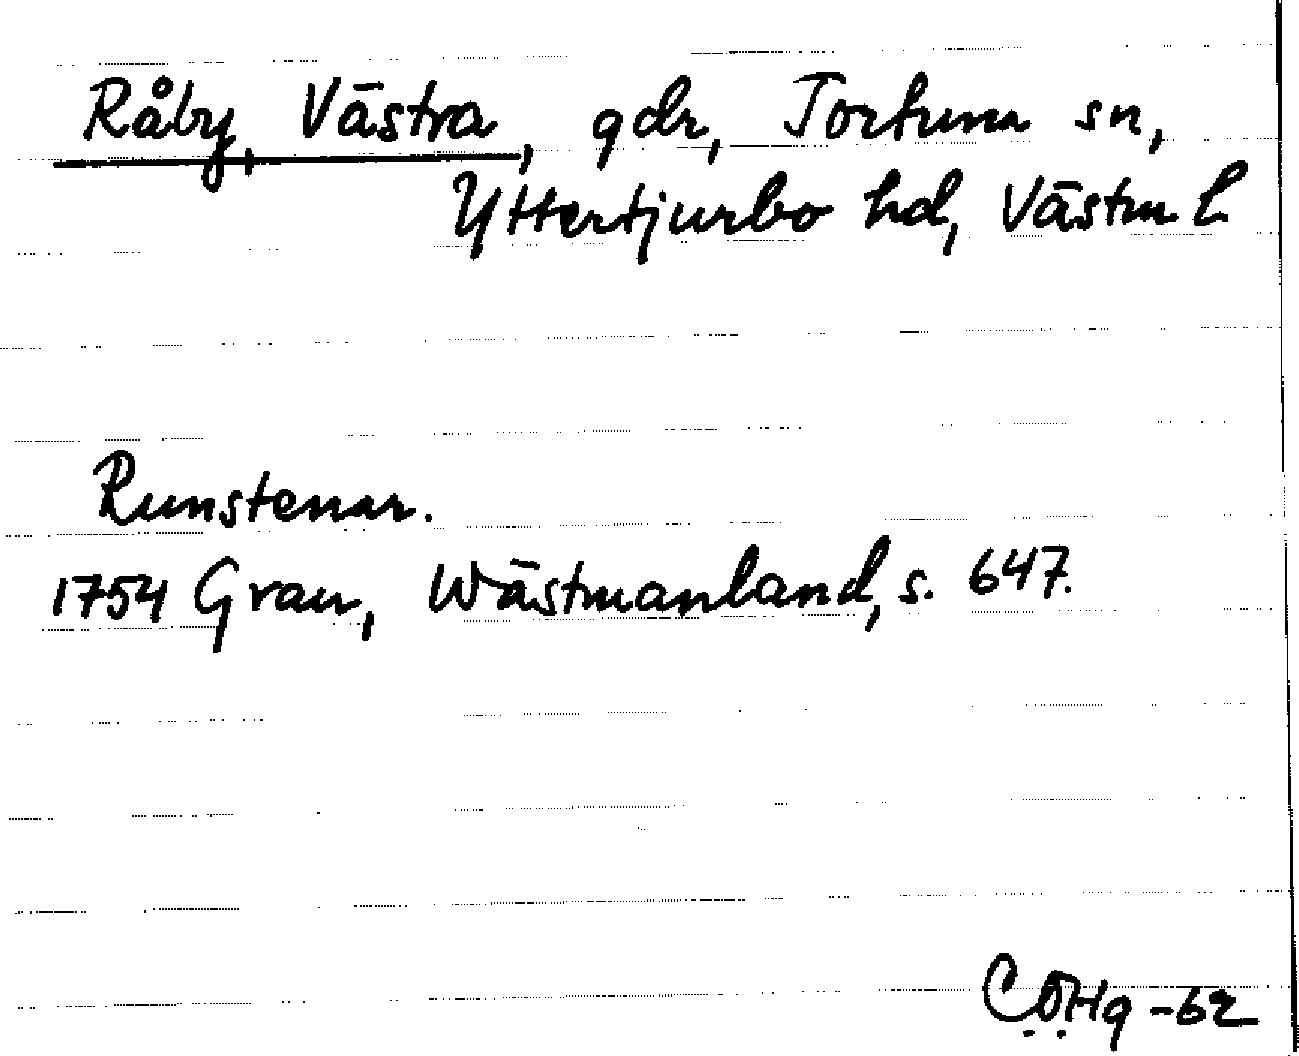 Råby, Västra, gdr, Tortuna sn,
Yttertjurbo hd, Västm l.
Runstenar.
1754 Grau, Wästmanland, s. 647.
C.Ö.Hg -62